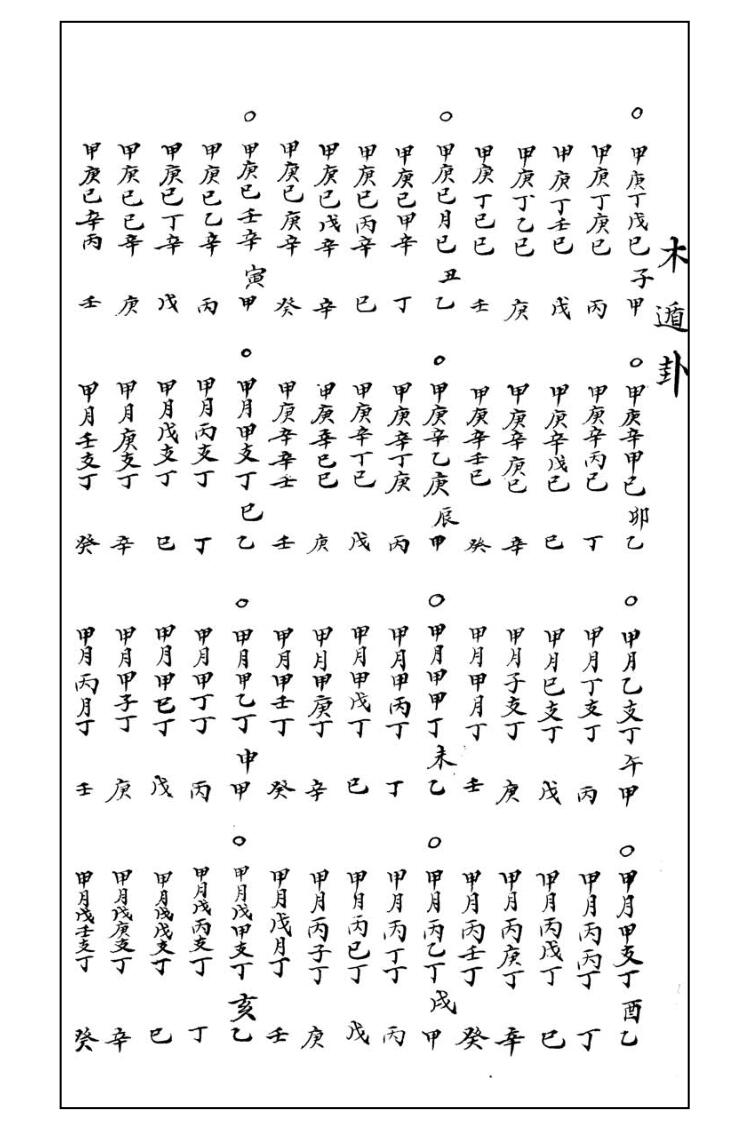 木遁卦
○甲庚丁戊巳子甲
甲庚丁庚巳丙
甲庚丁壬巳戊
甲庚丁乙巳庚
甲庚丁巳巳壬
○甲庚巳月巳丑乙
甲庚巳甲辛丁
甲庚巳丙辛巳
甲庚巳戊辛辛
甲庚巳庚辛癸
○甲庚巳壬辛寅甲
甲庚巳乙辛丙
甲庚巳丁辛戊
甲庚巳巳辛庚
甲庚巳辛丙壬
○甲庚辛甲巳卯乙
甲庚辛丙巳丁
甲庚辛戊巳巳
甲庚辛庚巳辛
甲庚辛壬巳癸
○甲庚辛乙庚辰甲
甲庚辛丁庚丙
甲庚辛丁巳戊
甲庚辛巳巳庚
甲庚辛辛壬壬
○甲月甲支丁巳乙
甲月丙支丁丁
甲月戊支丁巳
甲月庚支丁辛
甲月壬支丁癸
○甲月乙支丁午甲
甲月丁支丁丙
甲月巳支丁戊
甲月子支丁庚
甲月甲月丁壬
○甲月甲甲丁未乙
甲月甲丙丁丁
甲月甲戊丁巳
甲月甲庚丁辛
甲月甲壬丁癸
○甲月甲乙丁申甲
甲月甲丁丁丙
甲月甲巳丁戊
甲月甲子丁庚
甲月丙月丁壬
○甲月甲支丁酉乙
甲月丙丙丁丁
甲月丙戊丁巳
甲月丙庚丁辛
甲月丙壬丁癸
○甲月丙乙丁戌甲
甲月丙丁丁丙
甲月丙巳丁戊
甲月丙子丁庚
甲月戊月丁壬
○甲月戊甲支丁亥乙
甲月戊丙支丁丁
甲月戊戊支丁巳
甲月戊庚支丁辛
甲月戊壬支丁癸